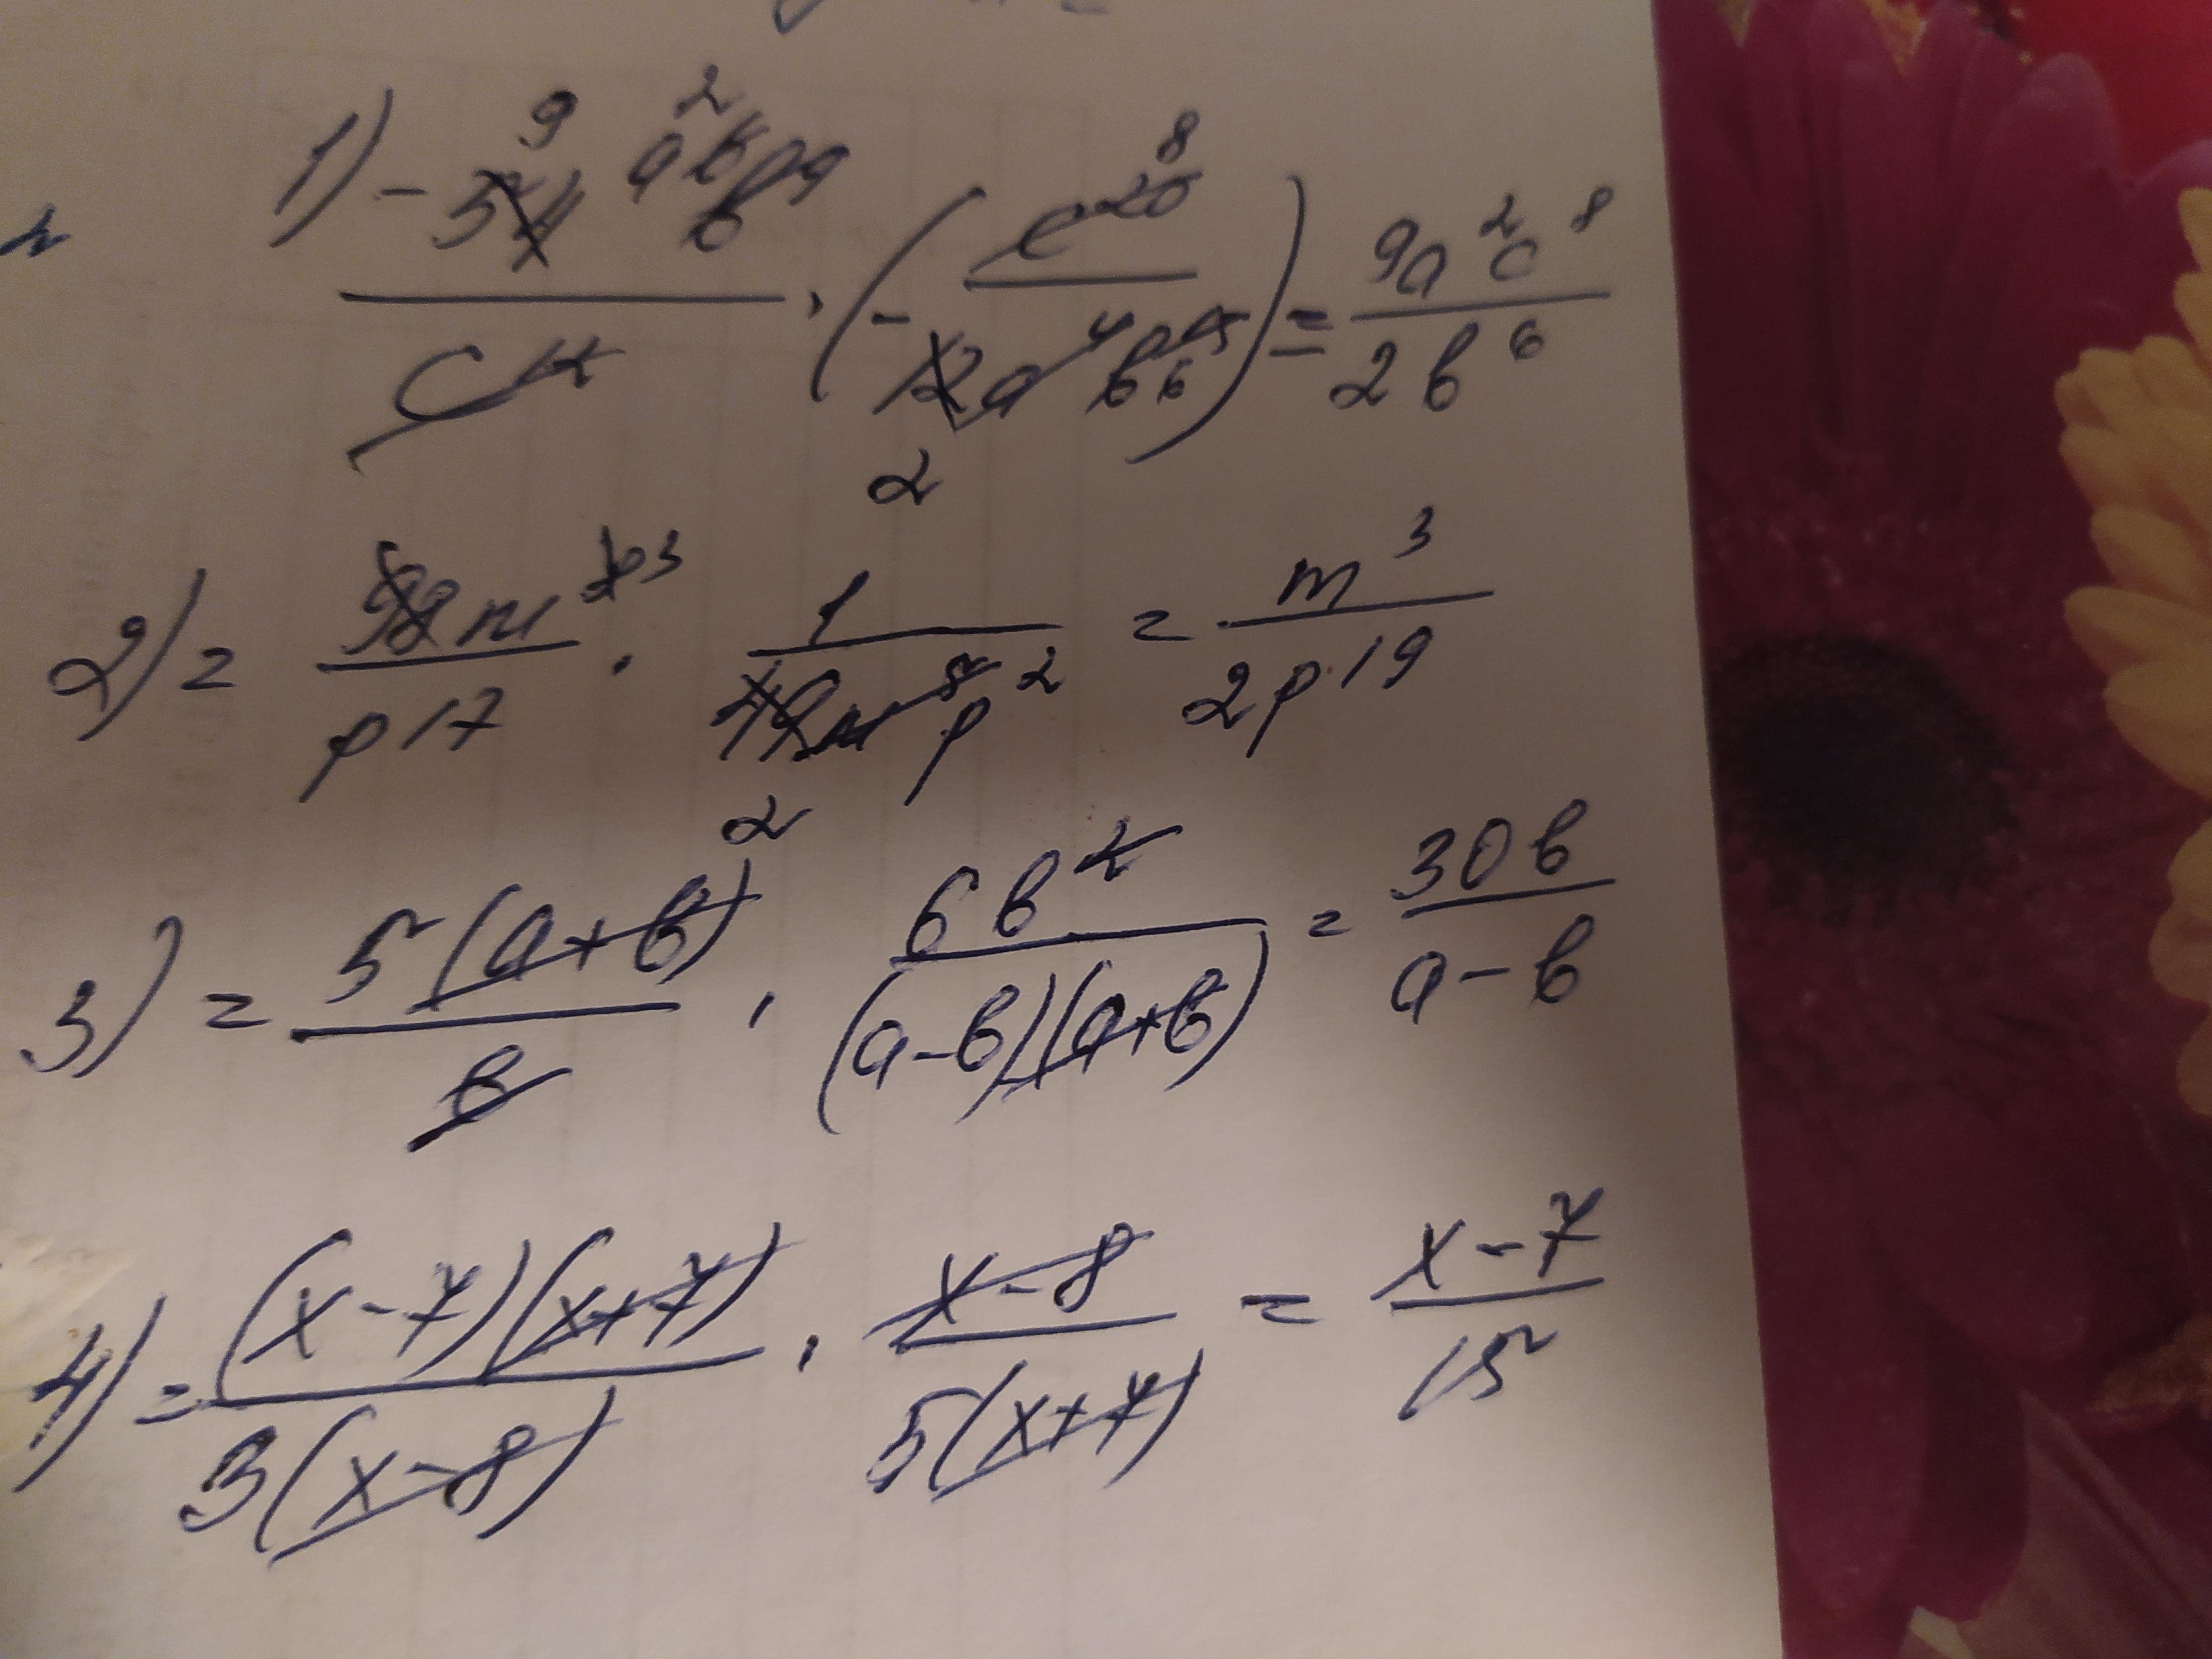 1) - 54 a b 9 / c · (- c 20 / 12 a 4 b) = 9a²c⁸ / 2b⁶
2) = m 3 / p 17 · 1 / m 8 p² = m³ / 2p¹⁹
3) = 5(a+b) / b · 6b² / (a-b)(a+b) = 30b / a-b
4) = (x-7)(x+7) / 3(x-8) · x-8 / 5(x+7) = x-7 / 15